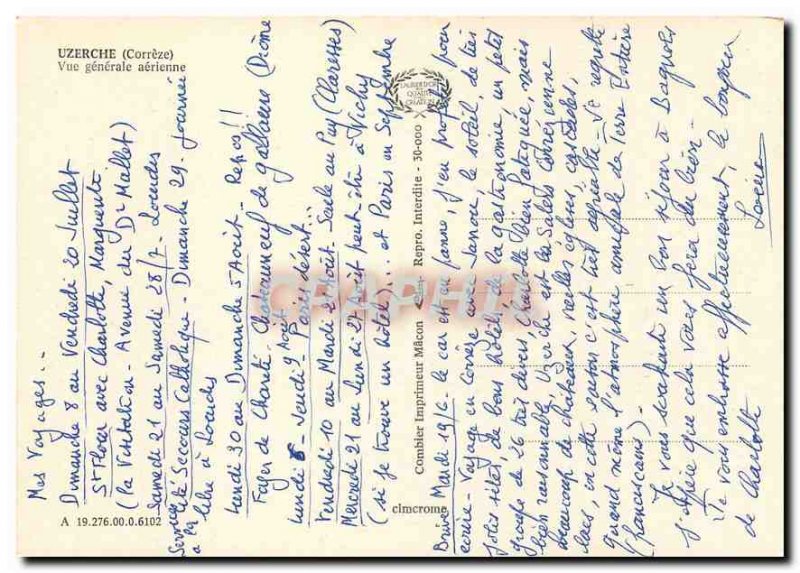 UZERCHE (Corrèze)
Vue générale aérienne
A 19.276.00.0.6102
LABEUR D'OR
QUALITÉ
Combier Imprimeur Mâcon Repro. Interdite - 30-000
cimcrome
CPAPHIL
Mes Voyages..
Dimanche 8 au Vendredi 20 Juillet
St Flour avec Charlotte, Marguerite
(la Visitation - Avenue du Dr Mallet)
Samedi 21 au Samedi 28/7 - Lourdes
Cité Secours Catholique - Dimanche 29 - journée
libre à Lourdes
Lundi 30 au Dimanche 5 Août - Repos!!
Foyer de Charité - Châteauneuf de Galaure (Drôme
Lundi 6 - Jeudi 9 Août - Paris désert...
Vendredi 10 au Mardi 21 Août - Seule au Puy (Clarisses)
Mercredi 21 au Lundi 27 Août peut être à Vichy
(si je trouve un hôtel)... et Paris en Septembre
Brive Mardi 19/6 - le car est en panne, j'en profite pour
écrire - Voyage en Corrèze avec Savoie, le soleil, de très
jolis sites, de bons hôtels, de la gastronomie, un petit
groupe de 26 très divers, Charlotte bien fatiguée, mais
bien raisonnable. Uzerche est la Salers Corrézienne
beaucoup de châteaux, vieilles églises, cascades,
lacs, en cette saison c'est très agréable - Je regrette
quand même l'atmosphère amicale de Terre Entière
(franciscains).
Je vous souhaite un bon séjour à Bagnols
j'espère que cela vous fera du bien -
Je vous embrasse affectueusement, le bonjour
de Charlotte